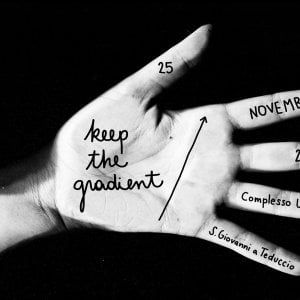 keep
the
gradient
25
NOVEMB
2
Complesso U
S. Giovanni a Teduccio